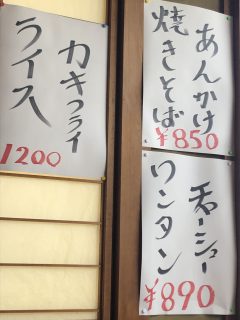 あんかけ
焼きそば
¥850
チャーシュー
ワンタン
¥890
カキフライ
ライス
1200